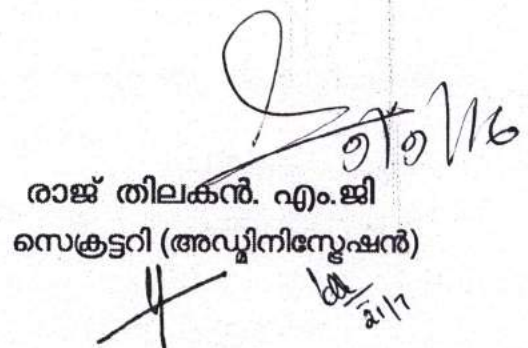 രാജ് തിലകൻ. എം.ജി
സെക്രട്ടറി (അഡ്മിനിസ്ട്രേഷൻ)
21/7